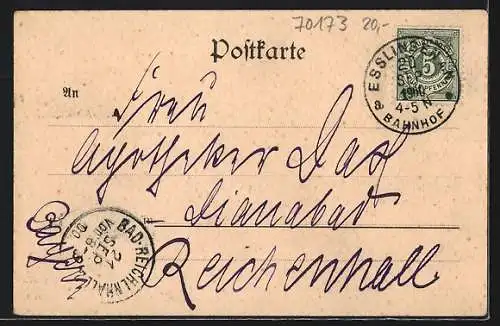 70173 20,-
Postkarte
ESSLINGEN
5
PFENNIG
1900
4-5 N
a BAHNHOF
An
Frau
Apotheker Das
Dianabad
Reichenhall
Bayern
BAD-REICHENHALL
SEP
00